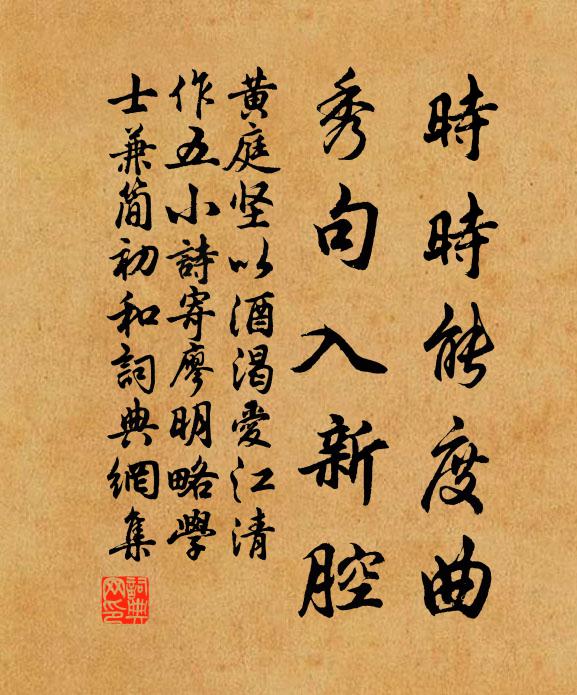 時時能度曲
秀句入新腔
黄庭坚以酒渴愛江清
作五小詩寄廖明略學
士兼簡初和詞典網集
詞典网印